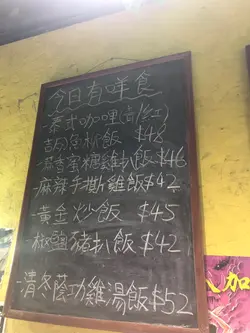 今日有咩食
-泰式咖哩(青/紅)
吉列魚扒飯 $48
-蒜香蜜糖雞扒飯$46
-麻辣手撕雞飯$42
-黃金炒飯 $45
-椒鹽豬扒飯$42
-清冬蔭功雞湯飯$52
加